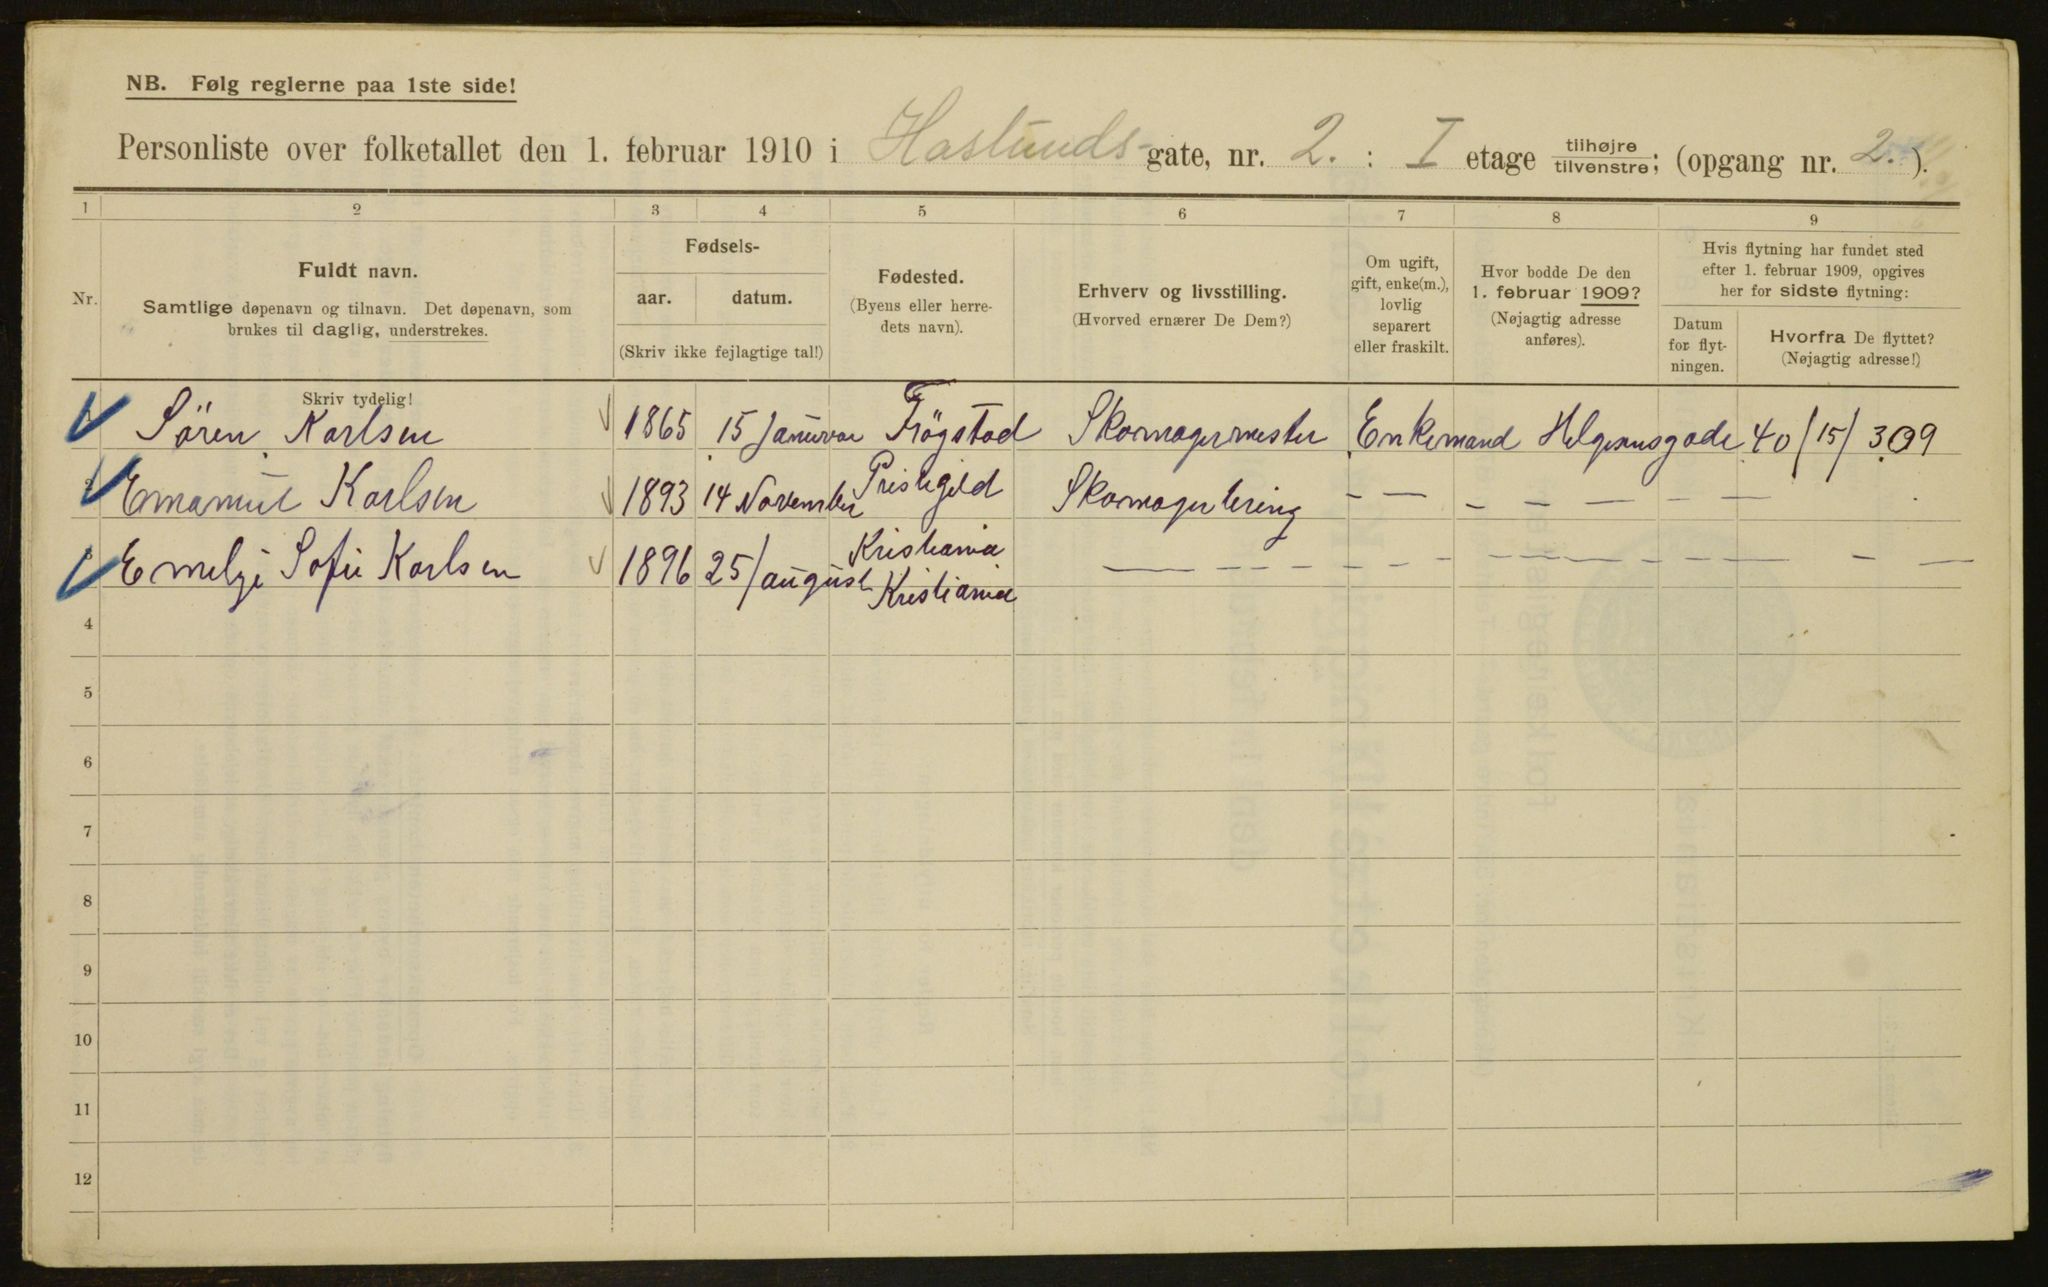 NB. Følg reglerne paa 1ste side!
Personliste over folketallet den 1. februar 1910 i Haslunds- gate, nr. 2. : I etage tilhøjre tilvenstre; (opgang nr. 2.).
1 2 3 4 5 6 7 8 9
Nr.
Fuldt navn.
Samtlige døpenavn og tilnavn. Det døpenavn, som
brukes til daglig, understrekes.
Fødsels-
aar. datum.
(Skriv ikke fejlagtige tal!)
Fødested.
(Byens eller herre-
dets navn).
Erhverv og livsstilling.
(Hvorved ernærer De Dem?)
Om ugift,
gift, enke(m.),
lovlig
separert
eller fraskilt.
Hvor bodde De den
1. februar 1909?
(Nøjagtig adresse
anføres).
Hvis flytning har fundet sted
efter 1. februar 1909, opgives
her for sidste flytning:
Datum
for flyt-
ningen.
Hvorfra De flyttet?
(Nøjagtig adresse!)
Skriv tydelig!
Sören Karlsen 1865 15 Januar Trögstad Skomagermester Enkemand Helgesensgade 40 / 15 / 3 09
Prestegjeld
Emanuel Karlsen 1893 14 November Skomagerlering – – – – – – – –
Kristiania
3 Emelje Sofie Karlsen 1896 25/august Kristiania — – – – – – – –
4
5
6
7
8
9
10
11
12